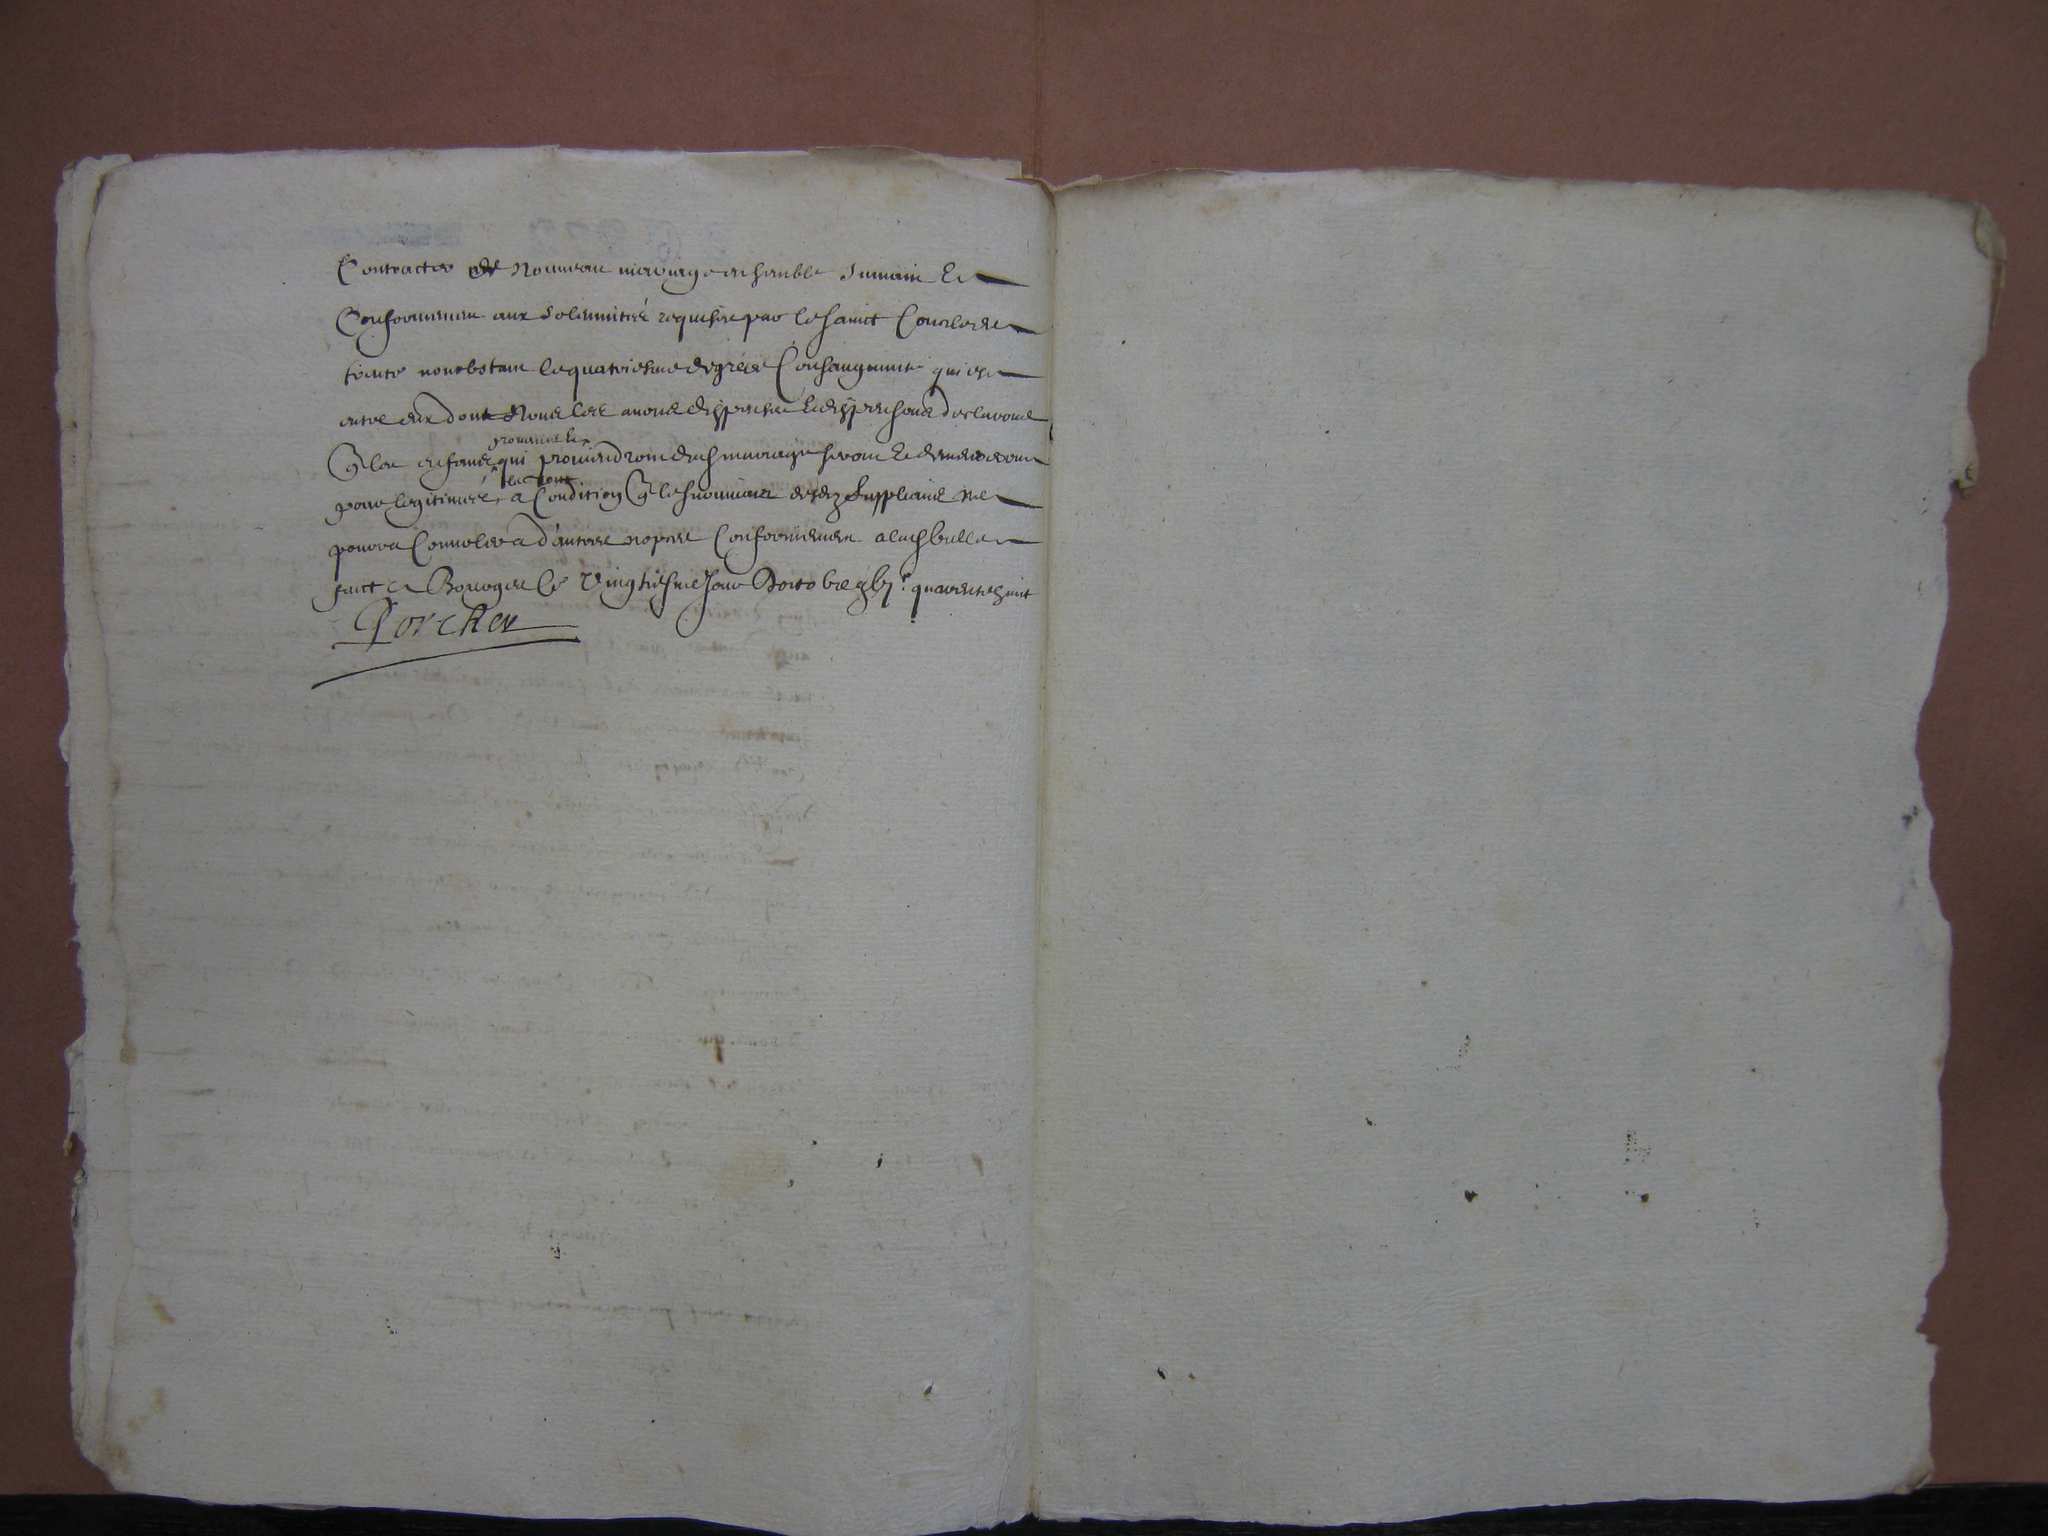 Contracter de Nouveau mariage ensemble suivain &
Conformemen aux solemnitéé requise par le sainct Concile de
trente nonobstant le quatriesme degré de Consanguinité qui est
entre eux dont Nous les avons dispensé & dispensons declarons
provenus &
q les enfans qui proviendront dud mariage seront & demeureront
pour legitimes a Condition q le survivant desd supplians ne
pourra Convoler a d'autres nopces Conformement a lad bulle
faict a Bourges le Vingtiesme Jour Doctobre gbjc quarente huict
Porcher